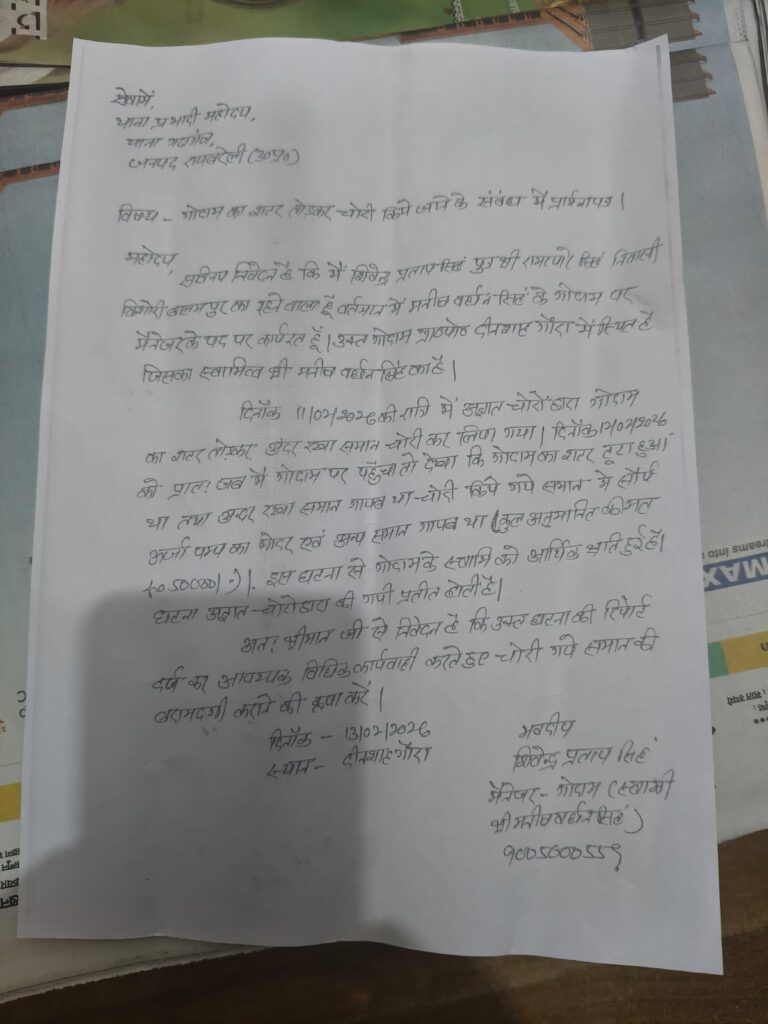 सेवामें,
थाना प्रभारी महोदय,
थाना गदागंज,
जनपद रायबरेली (उ०प्र०)
विषय - गोदाम का शटर तोड़कर चोरी किये जाने के संबंध में प्रार्थनापत्र।
महोदय,
सविनय निवेदन है कि मैं शिवेन्द्र प्रताप सिंह पुत्र श्री सिंह निवासी
का रहने वाला हूँ वर्तमान में मनीष वर्धन सिंह के गोदाम पर
मैनेजर के पद पर कार्यरत हूँ। उक्त गोदाम दीनशाह गौरा में स्थित है
जिसका स्वामित्व श्री मनीष वर्धन सिंह का है।
दिनाँक 11/02/2026 की रात्रि में अज्ञात चोरों द्वारा गोदाम
का शटर तोड़कर अंदर रखा समान चोरी कर लिया गया। दिनाँक 12/02/2026
को प्रातः जब मैं गोदाम पर पहुँचा तो देखा कि गोदाम का शटर टूटा हुआ
था तथा अन्दर रखा समान गायब था चोरी किये गये समान में सौर्य
ऊर्जा पम्प का मोटर एवं अन्य समान गायब था। कुल अनुमानित कीमत
इस घटना से गोदाम के स्वामि को आर्थिक क्षति हुई है।
घटना अज्ञात चोरों द्वारा की गयी प्रतीत होती है।
अतः श्रीमान जी से निवेदन है कि उक्त घटना की रिपोर्ट
दर्ज कर आवश्यक विधिक कार्यवाही करते हुए चोरी गये समान की
बरामदगी कराने की कृपा करें।
दिनाँक - 13/02/2026
स्थान - दीनशाह गौरा
भवदीय
शिवेन्द्र प्रताप सिंह
मैनेजर - गोदाम (स्वामी
श्री मनीष वर्धन सिंह)
MAX
dreams into